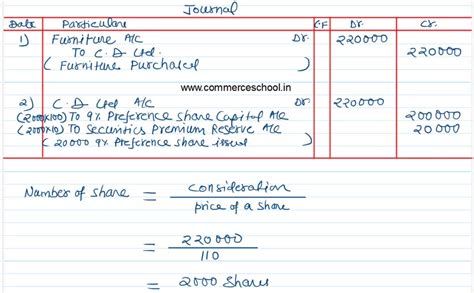 Journal
Date Particulars L.F Dr. Cr.
1) Furniture A/c Dr. 220000
To C.D Ltd. 220000
( Furniture Purchased )
www.commerceschool.in
2) C.D Ltd A/c Dr. 220000
(2000x100) To 9% Preference share Capital A/c 200000
(2000x10) To Securities Premium Reserve A/c 20000
( 20000 9% Preference share issued )
Number of share = consideration / price of a share
= 220000 / 110
= 2000 shares